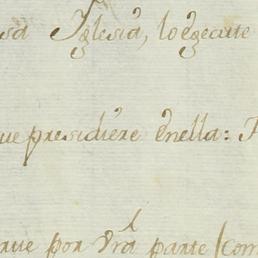 sa Yglesia, lo egecute
ue presidiere enella:
que por vrã parte (com